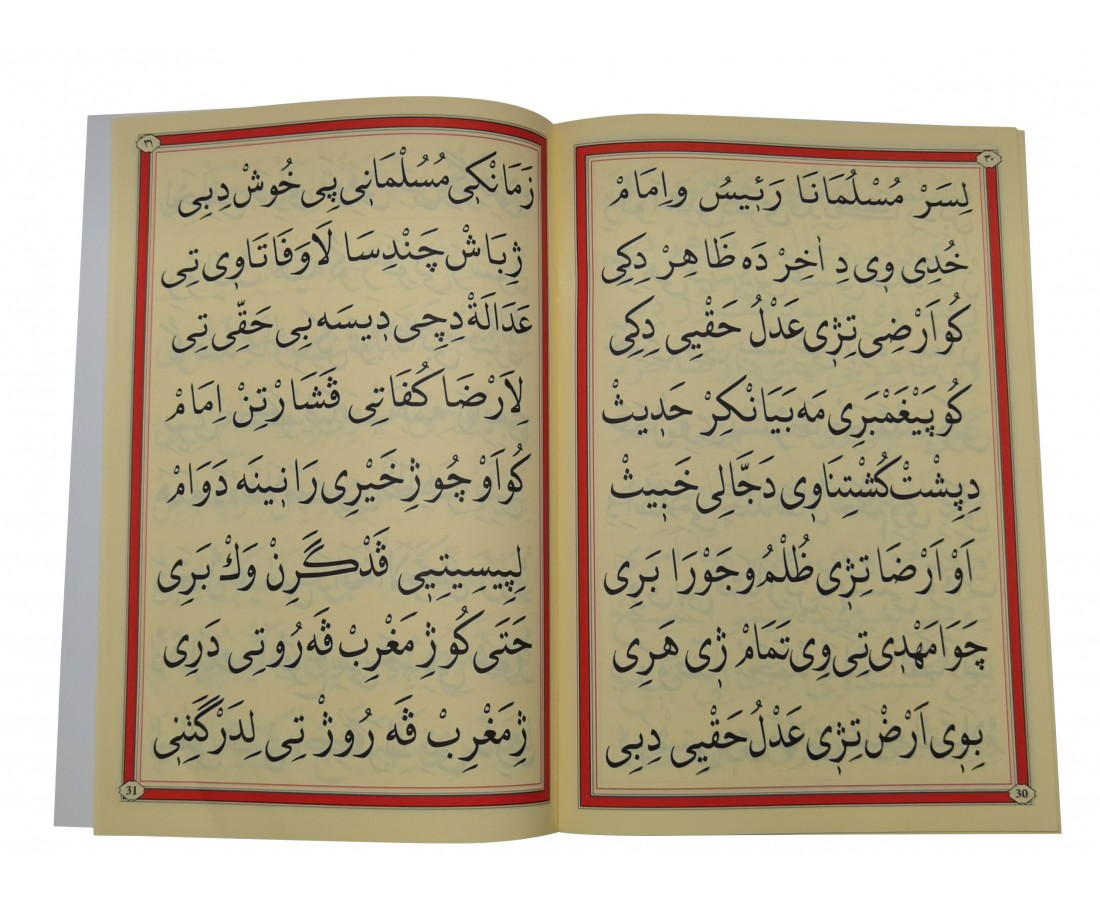 ٣٠
لِسَرْ مُسْلُمَانَا رَئِيسُ وِامَامْ
خُدِى وِى دِ اٰخِرْ دَه ظَاهِرْ دِكِى
كُو اَرْضِى تِژِى عَدْلُ حَقْيِى دِكِى
كُو پَيْغَمْبَرِى مَه بَيَانْكِرْ حَدِيثْ
دِپِشْتْ كُشْتِنَاوِى دَجَّالِى خَبِيثْ
اَوْ اَرْضَا تِژِى ظُلْمُ وجَوْرَا بَرِى
چَوَا مَهْدِى تِى وِى تَمَامْ ژِى هَرِى
بِوِى اَرْضْ تِژِى عَدْلُ حَقْيِى دِبِى
30
٣١
زَمَانْكِى مُسُلْمَانِى پِى خُوشْ دِبِى
ژِبَاشْ چَنْدِ سَا لَا وَفَاتَاوِى تِى
عَدَالَةْ دِچِى دِيسَه بِى حَقِّى تِى
لِاَرْضَا كُفَاتِى ڤَشَارْتِنْ اِمَامْ
كُو اَوْ چُو ژِ خَيْرِى رَانِينَه دَوَامْ
لِپِيسِيتِيِى ڤَدْگَرِنْ وَكْ بَرِى
حَتَى كُو ژِ مَغْرِبْ ڤَه رُوتِى دَرِى
ژِ مَغْرِبْ ڤَه رُوژْ تِى لِدَرْگَتْنِى
31